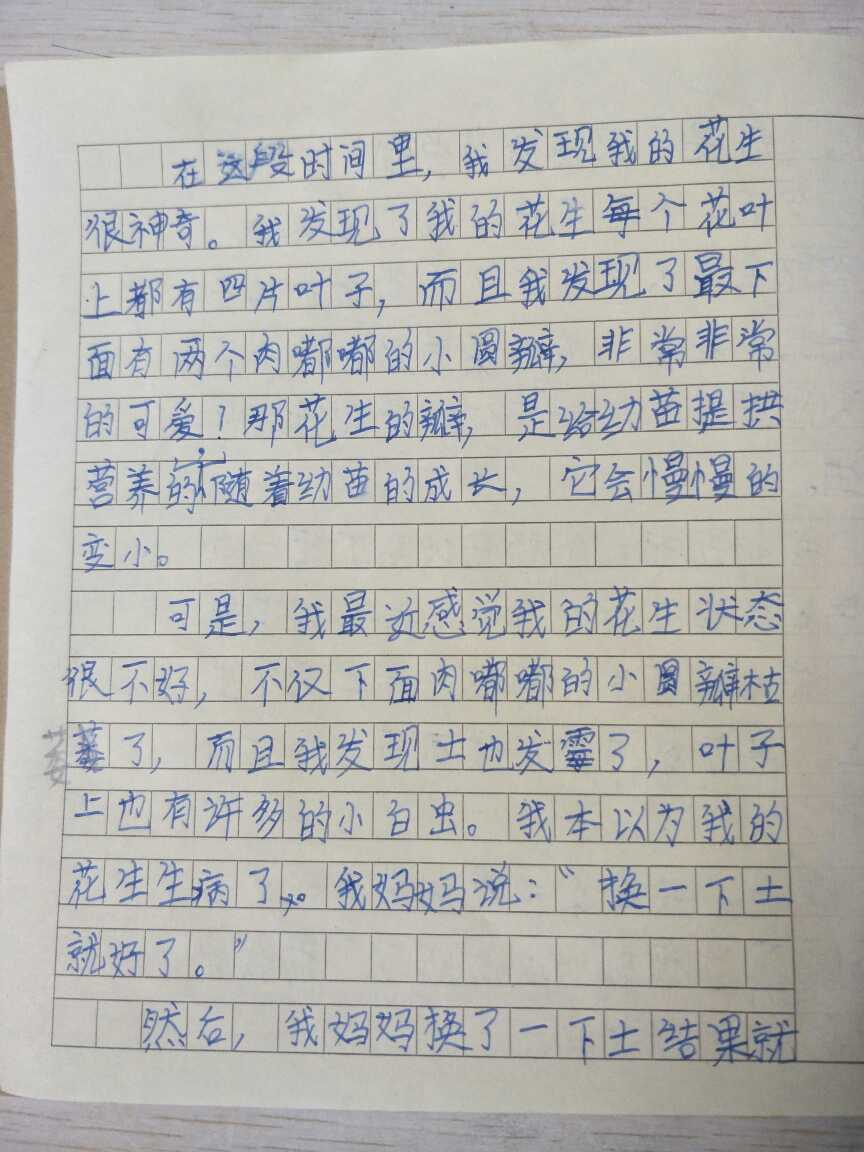 在这段时间里，我发现我的花生
很神奇。我发现了我的花生每个花叶
上都有四片叶子，而且我发现了最下
面有两个肉嘟嘟的小圆瓣，非常非常
的可爱！那花生的瓣，是给幼苗提拱
营养的，随着幼苗的成长，它会慢慢的
变小。
可是，我最近感觉我的花生状态
很不好，不仅下面肉嘟嘟的小圆瓣枯
萎了，而且我发现土也发霉了，叶子
上也有许多的小白虫。我本以为我的
花生生病了，。我妈妈说：“换一下土
就好了。”
然后，我妈妈换了一下土结果就